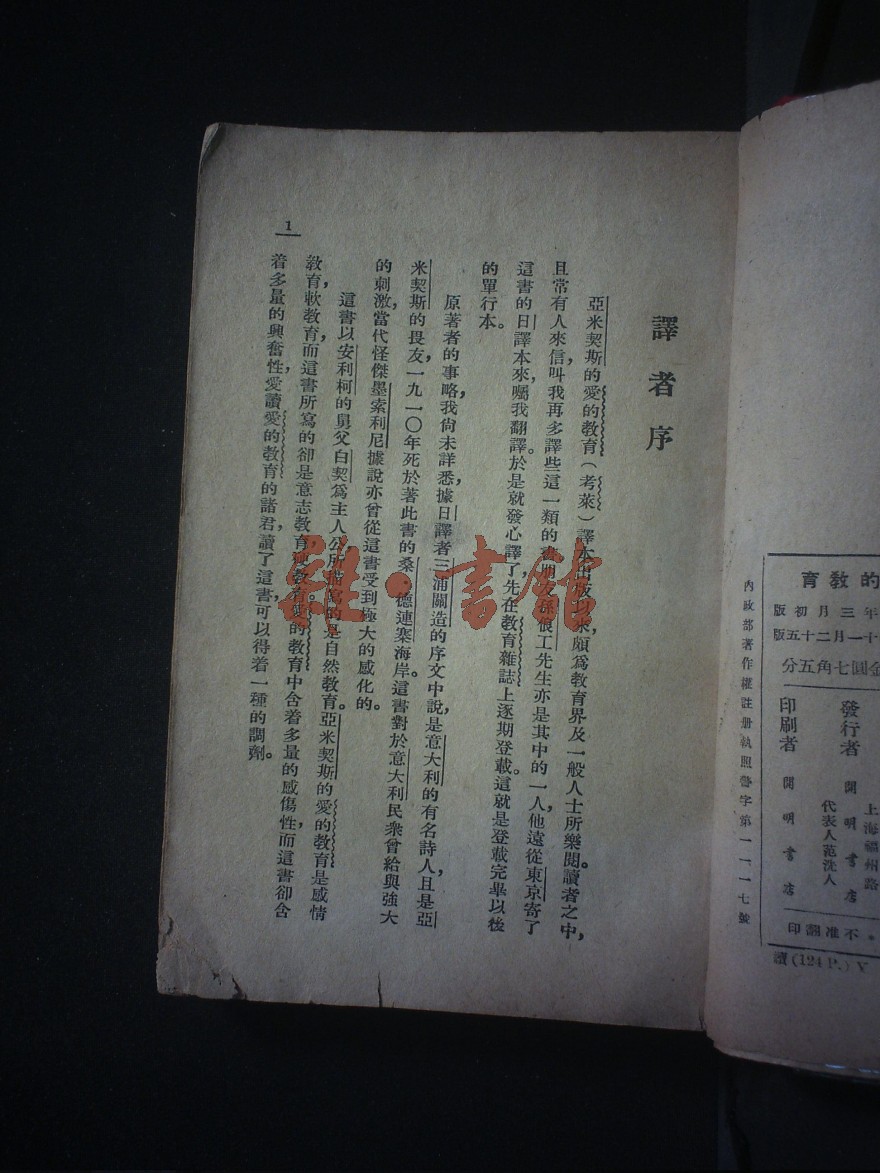 譯者序
亞米契斯的愛的教育(考萊)譯本出版以來,頗爲教育界及一般人士所樂閱。讀者之中,
且常有人來信,叫我再多譯些這一類的書。朋友孫俍工先生亦是其中的一人,他遠從東京寄了
這書的日譯本來,囑我翻譯。於是就發心譯了,先在教育雜誌上逐期登載。這就是登載完畢以後
的單行本。
原著者的事略,我尚未詳悉,據日譯者三浦關造的序文中說,是意大利的有名詩人,且是亞
米契斯的畏友,一九一〇年死於著此書的桑·德連寨海岸。這書對於意大利民衆曾給與強大
的刺激,當代怪傑墨索利尼據說亦曾從這書受到極大的感化的。
這書以安利柯的舅父白契爲主人公,所描寫的是自然教育。亞米契斯的愛的教育是感情
教育,軟教育,而這書所寫的卻是意志教育,硬教育。愛的教育中含着多量的感傷性,而這書卻含
着多量的興奮性,愛讀愛的教育的諸君,讀了這書,可以得着一種的調劑。
1
雜·書館
的教育
年三月初版
十一月二十五版
金圓七角五分
發行者
上海福州路
開明書店
代表人范洗人
印刷者
開明書店
不准翻印
內政部著作權註册執照警字第一一一七號
讀(124P.) V